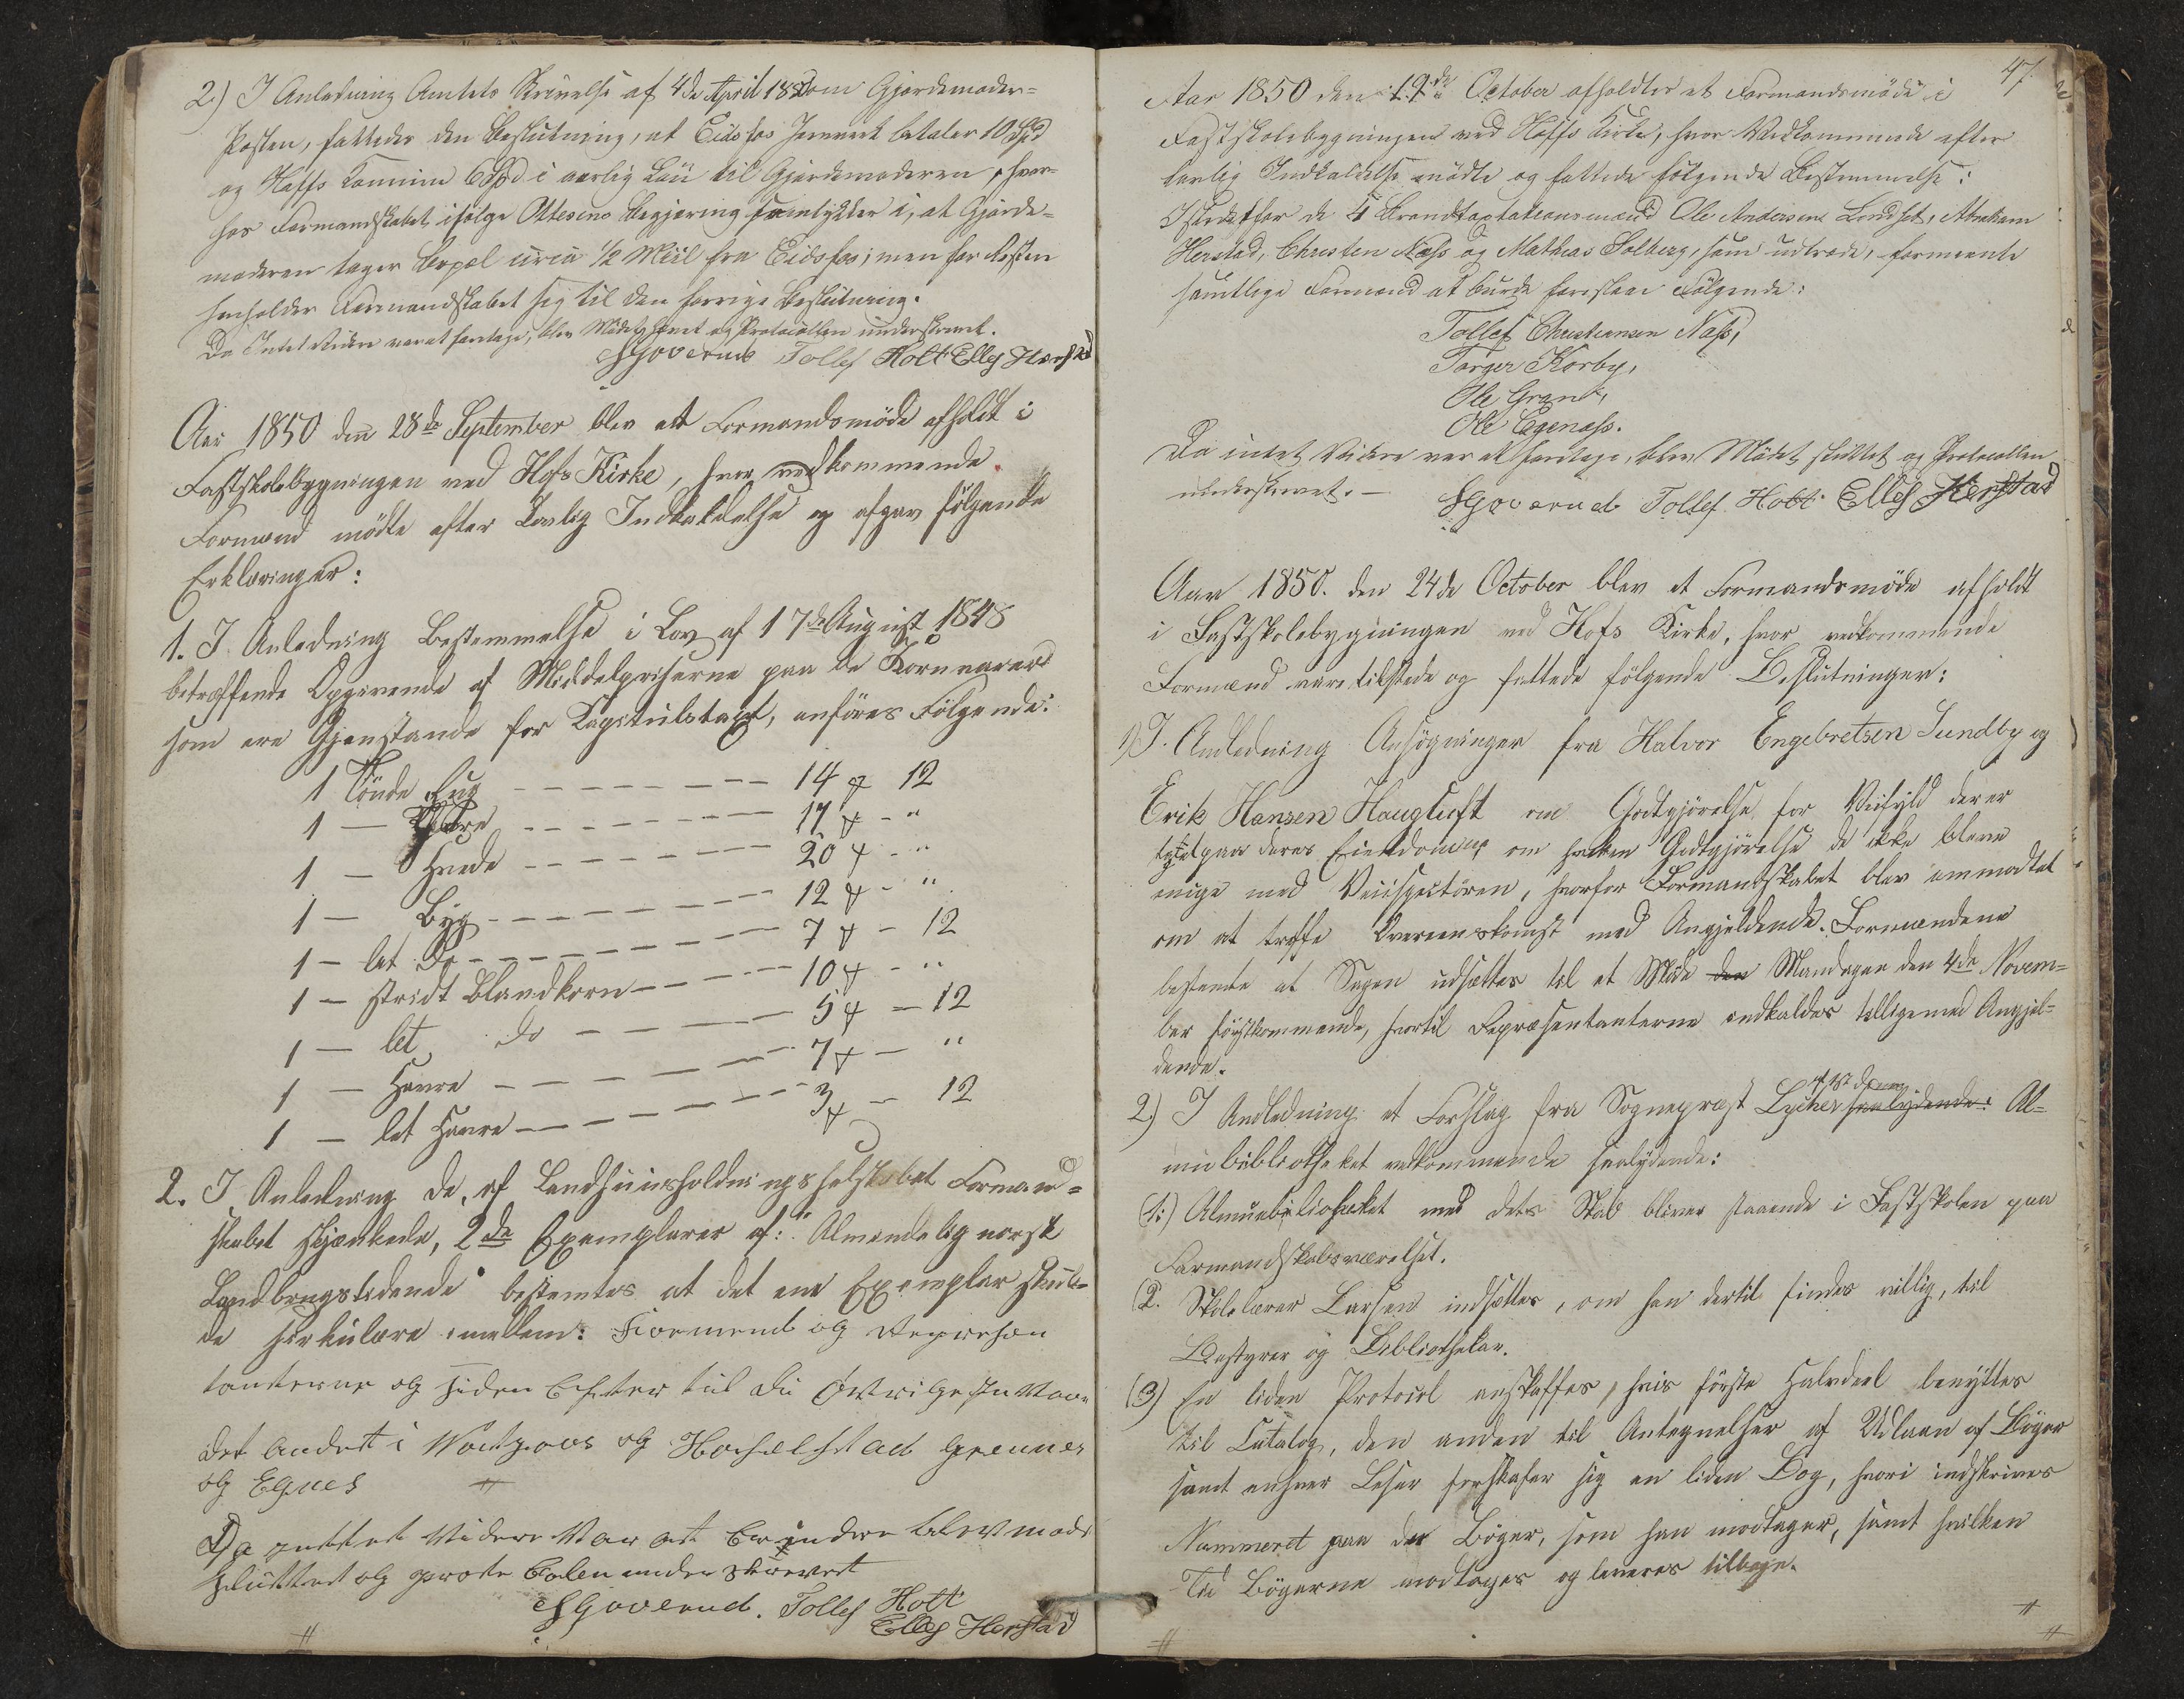 2.) I Anledning Amtets Skrivelse af 4de April 1850 om Gjordemoder-
Posten, fattedes den Beslutning, at Eidsfos Jernverk betaler 10 Spd
og Hoffs Commune 6 Spd i aarlig Løn til Gjordemoderen, hvor-
hos Formandskabet ifølge Ottesens Begjæring samtykker i, at Gjorde-
moderen tager Bopæl circa 1/2 Miil fra Eidsfos; men for Resten
henholder Formandskabet sig til den forrige Beslutning.
Da Intet videre var at foretage, blev Mødet hævet og Protocollen underskrevet.
Goverud Tollef Holt Ellef Herstad
Aar 1850 den 28de September blev et Formandsmöde afholdt i
Fastskolebygningen ved Hofs Kirke, hvor vedkommende
Formænd mödte efter Lovlig Indkaldelse og afgav fölgende
Erklæringer:
1. I Anledning Bestemmelse i Lov af 17de August 1848
betræffende Opgivende af Middelpriserne paa de Kornvarer
som ere Gjenstande for Kapitulstaxt, anföres Fölgende:
1 Tönde Rug - - - - - - - 14 12
1 — - - - - - - - 17 - "
1 — Hvede - - - - - - - 20 - "
1 — Byg - - - - - - - 12 - "
1 — let Do - - - - - - - 7 - 12
1 — stridt Blandkorn - - - - 10 - "
1 — let do - - - - - 5 - 12
1 — Havre - - - - - - - 7 - "
1 — let Havre - - - - - - 3 - 12
2. I Anledning de, af Landhuusholdningsselskabet Formand-
skabet skjænkede, 2de Exemplarer af: "Almindelig norsk
Landbrugstidende" bestemtes at det ene Exemplar skul-
de sirkulere imellem: Formend og Represen
tanterne og siden Efter til di övrige
det andet i og
og Egnes
Da intet videre var at erindre blev mödet
sluttet og protocolen underskrevet
Goverud. Tollef Holt
Ellef Herstad
47.
Aar 1850 den 19de October afholdtes et Formandsmöde i
Fastskolebygningen ved Hoffs Kirke, hvor Vedkommende efter
lovlig Indkaldelse mödte og fattede fölgende Bestemmelse:
Istedetfor de 4 Brandtaxtationsmænd Ole Andersens Lindset, Abraham
Herstad, Christen Næss og Mathias Solberg, som udtræde, formeente
samtlige Formænd at burde foreslaae Fölgende:
Tollef Christiansen Næss,
Torger Korby,
Ole Grant,
Ole Egenæss.
Da intet videre var at foretage, blev Mödet sluttet og Protocollen
underskrevet. —
Goverud Tollef Holt Ellef Herstad
Aar 1850. den 24de October blev et Formandsmöde afholdt
i Fastskolebygningen ved Hofs Kirke, hvor vedkommende
Formænd vare tilstede og fattede fölgende Beslutninger:
1) I. Anledning Ansögninger fra Halvor Engebretsen Sundby og
Erik Hansen Haugtuft om Godtgjörelse for Veifyld der er
paa deres Eiendomme om hvilken Godtgjörelse de ikke bleve
enige med Veiinspectören, hvorfor Formandskabet blev anmodtet
om at træffe Overeenskomst med Angjeldende. Formændene
bestemte at Sagen udsættes til et Möde den Mandagen den 4de Novem-
ber förstkommende, hvortil Repræsentanterne indkaldes tilligemed Angjel-
dende.
2.) I Anledning et Forslag fra Sogneprest Lycher saalydende: Al-
muebibliotheket vedkommende saalydende:
(1.) Almuebibliotheket med dets Skab bliver staaende i Fastskolen paa
Formandskabsværelset.
(2. Skolelærer Larsen indsættes, om han dertil findes villig, til
Bestyrer og Bibliothekar.
(3) En liden Protocol anskaffes, hvis förste Halvdeel benyttes
til Catalog, den anden til Antegnelser af Udlaan af Böger
samt enhver Læser forskaffer sig en liden Bog, hvori indskrives
Nummeret paa de Böger, som han modtager, samt hvilken
Tid Bögerne modtages og leveres tilbage.